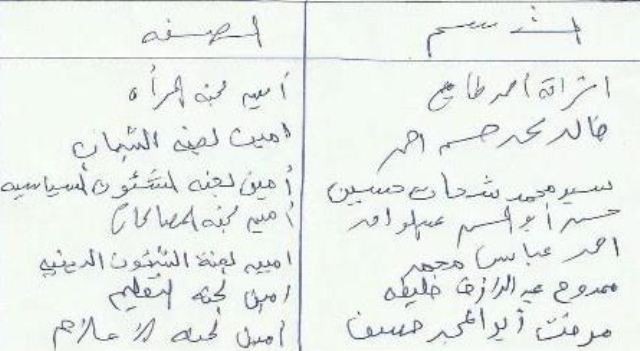 الاسم الصفه
اشراقه احمد طايع أمين لجنه المرأه
خالد محمد حسن احمد امين لجنه الشباب
سيد محمد شحات حسين أمين لجنه الشئون السياسيه
حسن أبو الحسن أمين لجنه المصالحات
احمد عباس محمد امين لجنة الشئون الدينيه
ممدوح عبد الرازق خليفه امين لجنه التعليم
ميرفت أبو المجد امين لجنه الاعلام